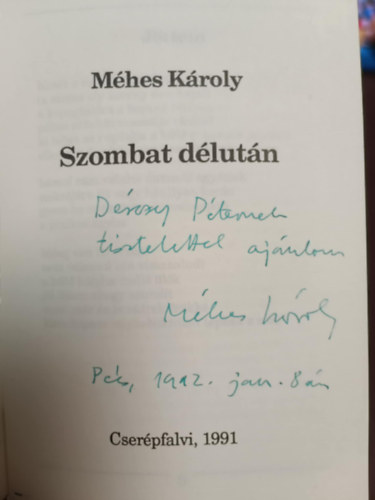 Méhes Károly
Szombat délután
Péternek
tisztelettel ajánlom
Méhes Károly
Pécs, 1992. jan. 8án
Cserépfalvi, 1991